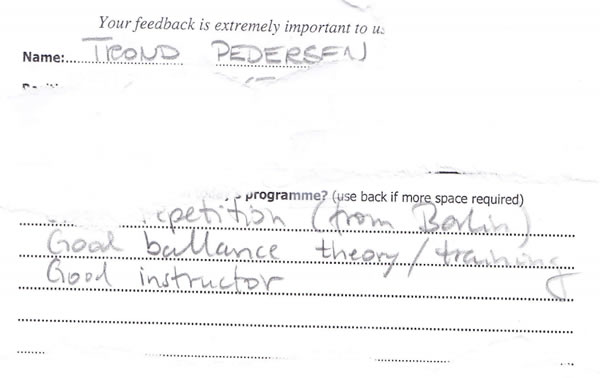 Your feedback is extremely important to us
Name: TROND PEDERSEN
programme? (use back if more space required)
epetition (from Berlin)
Good ballance theory/training
Good instructor